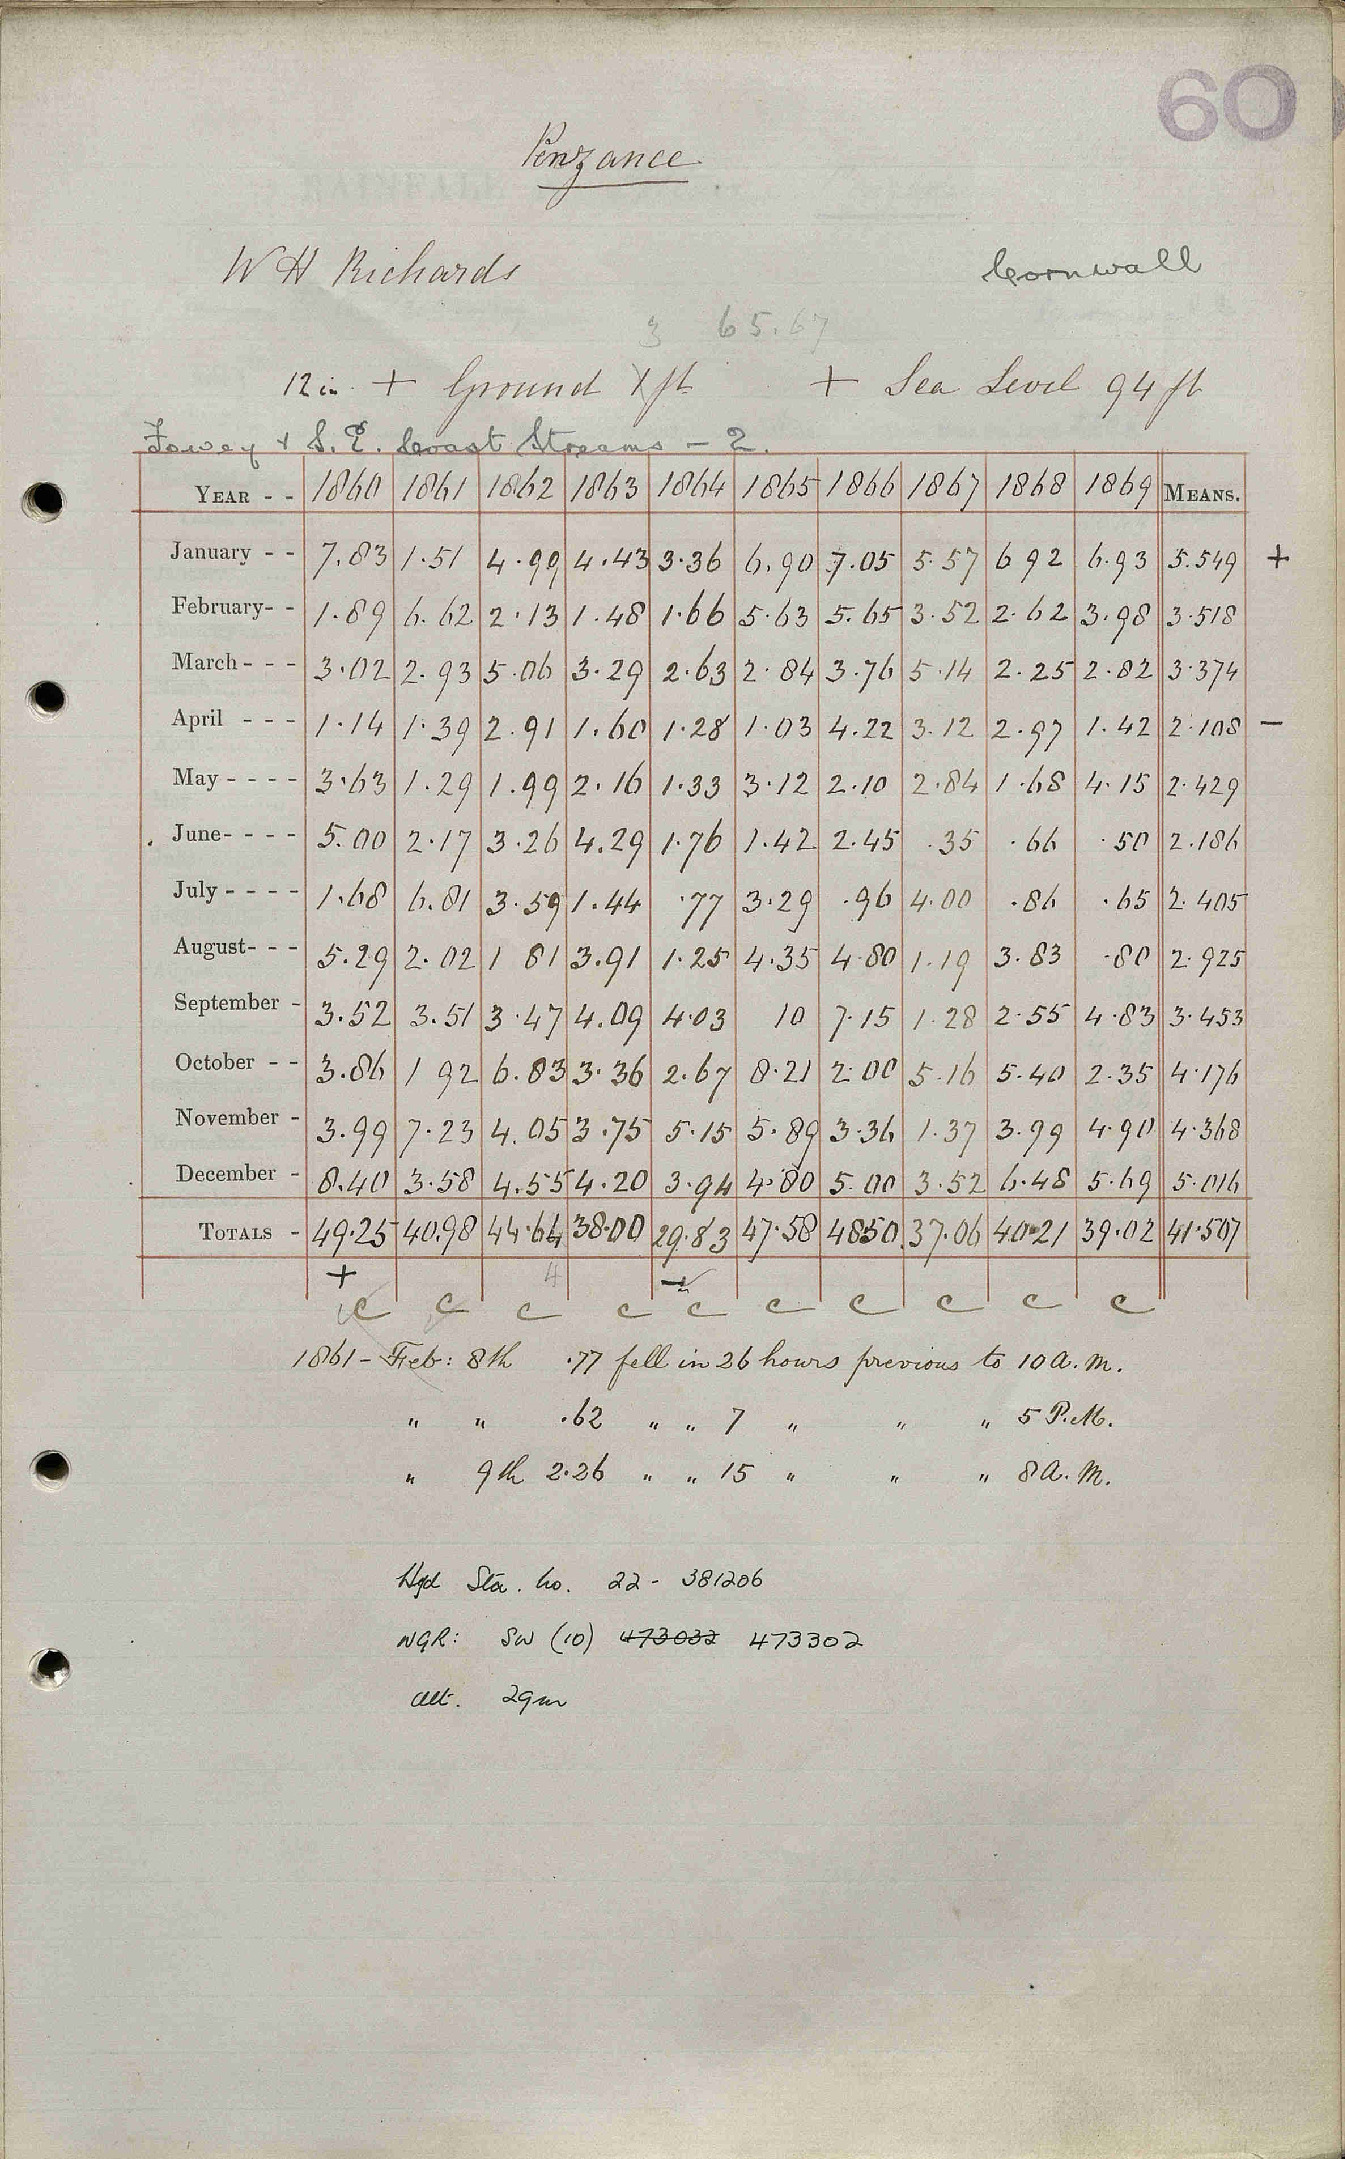 60
Penzance
W H Richards Cornwall
3 65.67
12 in. + Ground 1 ft + Sea Level 94 ft
Fowey & S. E. Coast Streams - 2.
YEAR - - 1860 1861 1862 1863 1864 1865 1866 1867 1868 1869 MEANS.
January - - 7.83 1.51 4.99 4.43 3.36 6.90 7.05 5.57 6 92 6.93 5.549 +
February- - 1.89 6.62 2.13 1.48 1.66 5.63 5.65 3.52 2.62 3.98 3.518
March - - - 3.02 2.93 5.06 3.29 2.63 2.84 3.76 5.14 2.25 2.82 3.374
April - - - 1.14 1.39 2.91 1.60 1.28 1.03 4.22 3.12 2.97 1.42 2.108 -
May - - - - 3.63 1.29 1.99 2.16 1.33 3.12 2.10 2.84 1.68 4.15 2.429
June- - - - 5.00 2.17 3.26 4.29 1.76 1.42 2.45 .35 .66 .50 2.186
July - - - - 1.68 6.81 3.59 1.44 .77 3.29 .96 4.00 .86 .65 2.405
August- - - 5.29 2.02 1 81 3.91 1.25 4.35 4.80 1.19 3.83 .80 2.925
September - 3.52 3.51 3.47 4.09 4.03 10 7.15 1.28 2.55 4.83 3.453
October - - 3.86 1 92 6.83 3.36 2.67 8.21 2.00 5.16 5.40 2.35 4.176
November - 3.99 7.23 4.05 3.75 5.15 5.89 3.36 1.37 3.99 4.90 4.368
December - 8.40 3.58 4.55 4.20 3.94 4.80 5.00 3.52 6.48 5.69 5.016
TOTALS - 49.25 40.98 44.64 38.00 29.83 47.58 48.50 37.06 40.21 39.02 41.507
+ 4 -
c c c c c c c c c c
1861 - Feb: 8th .77 fell in 26 hours previous to 10 A.M.
" " .62 " " 7 " " " 5 P.M.
" 9th 2.26 " " 15 " " " 8 A.M.
Hyd Sta. No. 22 - 381206
NGR: SW (10) 473032 473302
Alt. 29m